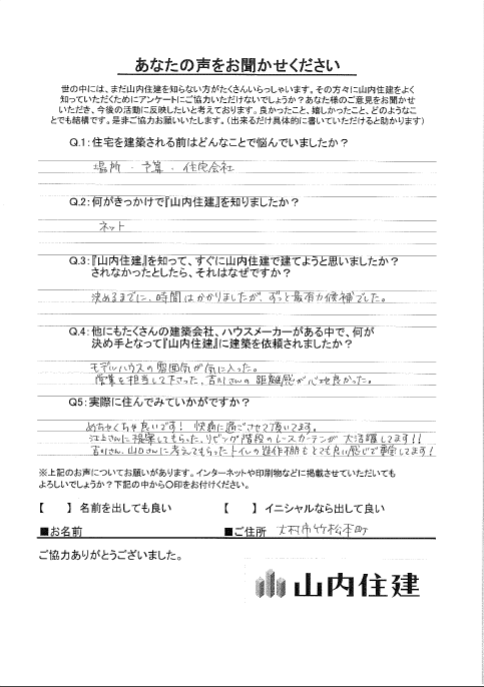 あなたの声をお聞かせください
世の中には、まだ山内住建を知らない方がたくさんいらっしゃいます。その方々に山内住建をよく
知っていただくためにアンケートにご協力いただけないでしょうか？あなた様のご意見をお聞かせ
いただき、今後の活動に反映したいと考えております。良かったこと、嬉しかったこと、どのようなこ
とでも結構です。是非ご協力お願いいたします。（出来るだけ具体的に書いていただけると助かります）
Q.1：住宅を建築される前はどんなことで悩んでいましたか？
場所 ・ 予算 ・ 住宅会社
Q.2：何がきっかけで『山内住建』を知りましたか？
ネット
Q.3：『山内住建』を知って、すぐに山内住建で建てようと思いましたか？
されなかったとしたら、それはなぜですか？
決めるまでに、時間はかかりましたが、ずっと最有力候補でした。
Q.4：他にもたくさんの建築会社、ハウスメーカーがある中で、何が
決め手となって『山内住建』に建築を依頼されましたか？
モデルハウスの雰囲気が気に入った。
営業を担当して下さった、吉川さんの距離感が心地良かった。
Q5：実際に住んでみていかがですか？
めちゃくちゃ良いです！ 快適に過ごさせて頂いてます。
江上さんに提案してもらった、リビング階段のレースカーテンが大活躍してます！！
吉川さん、山口さんに考えてもらったトイレの造作棚もとても良い感じで重宝してます！
※上記のお声についてお願いがあります。インターネットや印刷物などに掲載させていただいても
よろしいでしょうか？下記の中から〇印をお付けください。
【　　】 名前を出しても良い 【　　】 イニシャルなら出して良い
■お名前 ■ご住所 大村市竹松本町
ご協力ありがとうございました。
山内住建